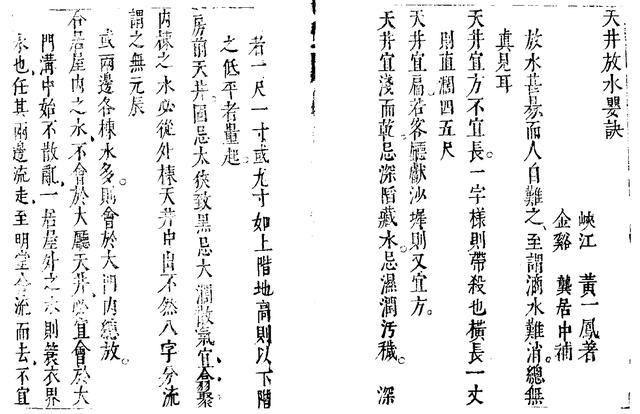 天井放水要訣
峽江 黃一鳳著
金谿 龔居中補
放水甚易而人自難之至謂滴水難消總無
真見耳
天井宜方不宜長一字樣則帶殺也橫長一丈
則直濶四五尺
天井宜扁若客廳獻沙墀則又宜方
天井宜淺而乾忌深陷藏水忌濕潤汚穢 深
若一尺一寸或九寸如上階地高則以下階
之低平者量起
房前天井固忌太狹致黑忌大濶散氣宜翕聚
內棟之水必從外棟天井中出不然八字分流
謂之無元辰
或兩邊各棟水多則會於大門內總放
各居屋內之水不會於大廳天井必宜會於大
門溝中始不散亂一居屋外之水則蓑衣界
水也任其兩邊流走至明堂合流而去不宜